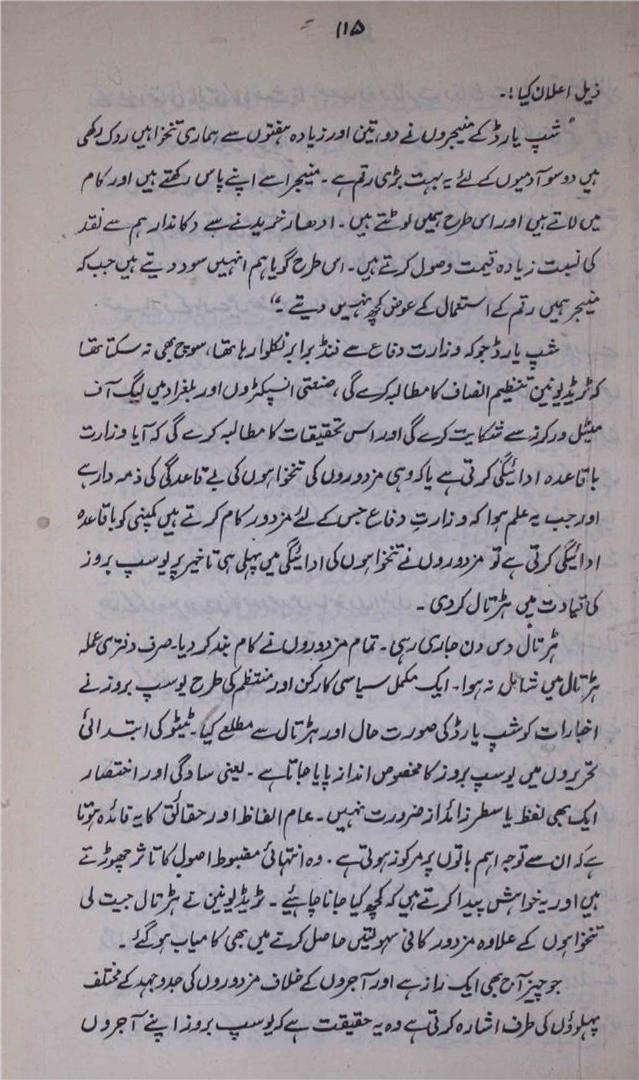 ۱۱۵
ذیل اعلان کیا :۔
”شپ یارڈ کے منیجروں نے دو، تین اور زیادہ ہفتوں سے ہماری تنخواہیں روک رکھی
ہیں دو سو آدمیوں کے لئے یہ بہت بڑی رقم ہے ۔ منیجر اسے اپنے پاس رکھتے ہیں اور کام
میں لاتے ہیں اور اس طرح ہمیں لوٹتے ہیں ۔ ادھار خریدنے سے دکاندار ہم سے نقد
کی نسبت زیادہ قیمت وصول کرتے ہیں ۔ اس طرح گویا ہم انہیں سود دیتے ہیں جب کہ
منیجر ہمیں رقم کے استعمال کے عوض کچھ نہیں دیتے ۔“
شپ یارڈ جو کہ وزارت دفاع سے فنڈ برابر نکلوا رہا تھا، سوچ بھی نہ سکتا تھا
کہ ٹریڈ یونین تنظیم انصاف کا مطالبہ کرے گی ، صنعتی انسپکٹروں اور بلغراد میں لیگ آف
میٹل ورکرز سے شکایت کرے گی اور اس تحقیقات کا مطالبہ کرے گی کہ آیا وزارت
باقاعدہ ادائیگی کرتی ہے یا کہ وہی مزدوروں کی تنخواہوں کی بے قاعدگی کی ذمہ دار ہے
اور جب یہ علم ہوا کہ وزارتِ دفاع جس کے لئے مزدور کام کرتے ہیں کمپنی کو باقاعدہ
ادائیگی کرتی ہے تو مزدوروں نے تنخواہوں کی ادائیگی میں پہلی ہی تاخیر پر یوسپ بروز
کی قیادت میں ہڑتال کر دی ۔
ہڑتال دس دن جاری رہی ۔ تمام مزدوروں نے کام بند کر دیا۔ صرف دفتری عملہ
ہڑتال میں شامل نہ ہوا ۔ ایک مکمل سیاسی کارکن اور منتظم کی طرح یوسپ بروز نے
اخبارات کو شپ یارڈ کی صورت حال اور ہڑتال سے مطلع کیا ۔ ٹیٹو کی ابتدائی
تحریروں میں یوسپ بروز کا مخصوص انداز پایا جاتا ہے ۔ یعنی سادگی اور اختصار
ایک بھی لفظ یا سطر زائد از ضرورت نہیں ۔ عام الفاظ اور حقائق کا یہ فائدہ ہوتا
ہے کہ ان سے توجہ اہم باتوں پر مرکوز ہوتی ہے ۔ وہ انتہائی مضبوط اصول کا تاثر چھوڑتے
ہیں اور یہ خواہش پیدا کرتے ہیں کہ کچھ کیا جانا چاہئیے ۔ ٹریڈ یونین نے ہڑتال جیت لی
تنخواہوں کے علاوہ مزدور کافی سہولتیں حاصل کرنے میں بھی کامیاب ہو گئے ۔
جو چیز آج بھی ایک راز ہے اور آجروں کے خلاف مزدوروں کی جدوجہد کے مختلف
پہلوؤں کی طرف اشارہ کرتی ہے وہ یہ حقیقت ہے کہ یوسپ بروز اپنے آجروں